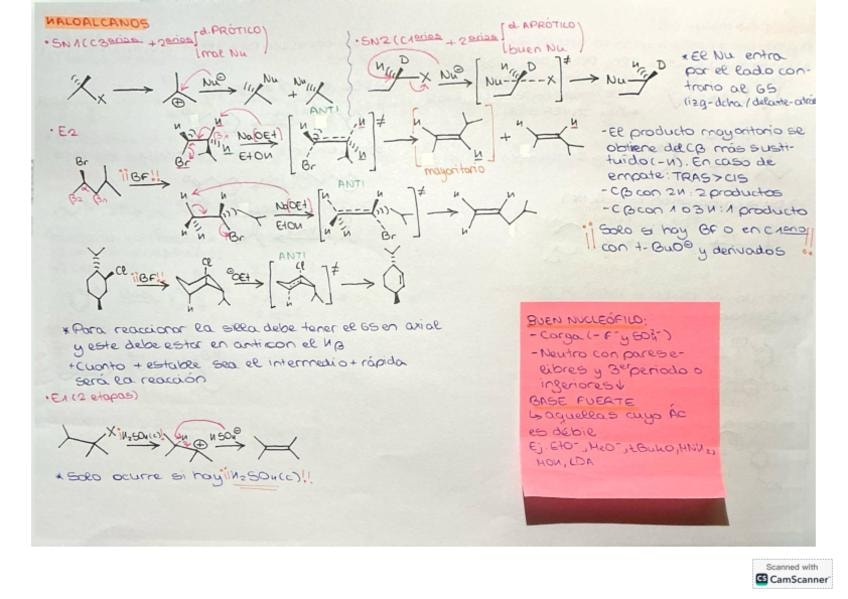 HALOALCANOS
• SN1 (C3arios + 2arios [d. PRÓTICO]
mal Nu
• SN2 (C1arios + 2arios [d. APRÓTICO]
buen Nu
X
Nu⊖
Nu
+
Nu
H D
X
Nu⊖
H D
Nu---X
≠
H D
Nu
* El Nu entra
por el lado con-
trario al GS
(izq-dcha / delante-atrás)
• E2
Br
β2 β1
¡¡BF!!
H
Br
Na OEt
EtOH
ANTI
H
Br
≠
H
H
mayoritario
+
H
H
- El producto mayoritario se
obtiene del Cβ más susti-
tuido (-H). En caso de
empate: TRAS > CIS
- Cβ con 2H: 2 productos
- Cβ con 1 o 3H: 1 producto
¡¡ Solo si hay BF o en C1ario !!
con t-BuO⊖ y derivados
H
H
H
Br
Na OEt
EtOH
ANTI
H
H
Br
≠
H
H
Cl
¡¡BF!!
Cl
H
⊖OEt
ANTI
Cl
H
≠
* Para reaccionar la silla debe tener el GS en axial
y este debe estar en anti con el Hβ
+ Cuanto + estable sea el intermedio + rápida
será la reacción
• E1 (2 etapas)
X
H2SO4(c)
H
⊕
HSO4⊖
* Solo ocurre si hay ¡¡H2SO4(c)!!
BUEN NUCLEÓFILO:
- Carga (- F⁻ y SO4²⁻)
- Neutro con pares e-
libres y 3er periodo o
inferiores ↓
BASE FUERTE
↳ aquellas cuyo Ác
es débil
Ej. EtO⁻, MeO⁻, tBuKO, HNH2,
HOH, LDA
Scanned with
CS CamScanner